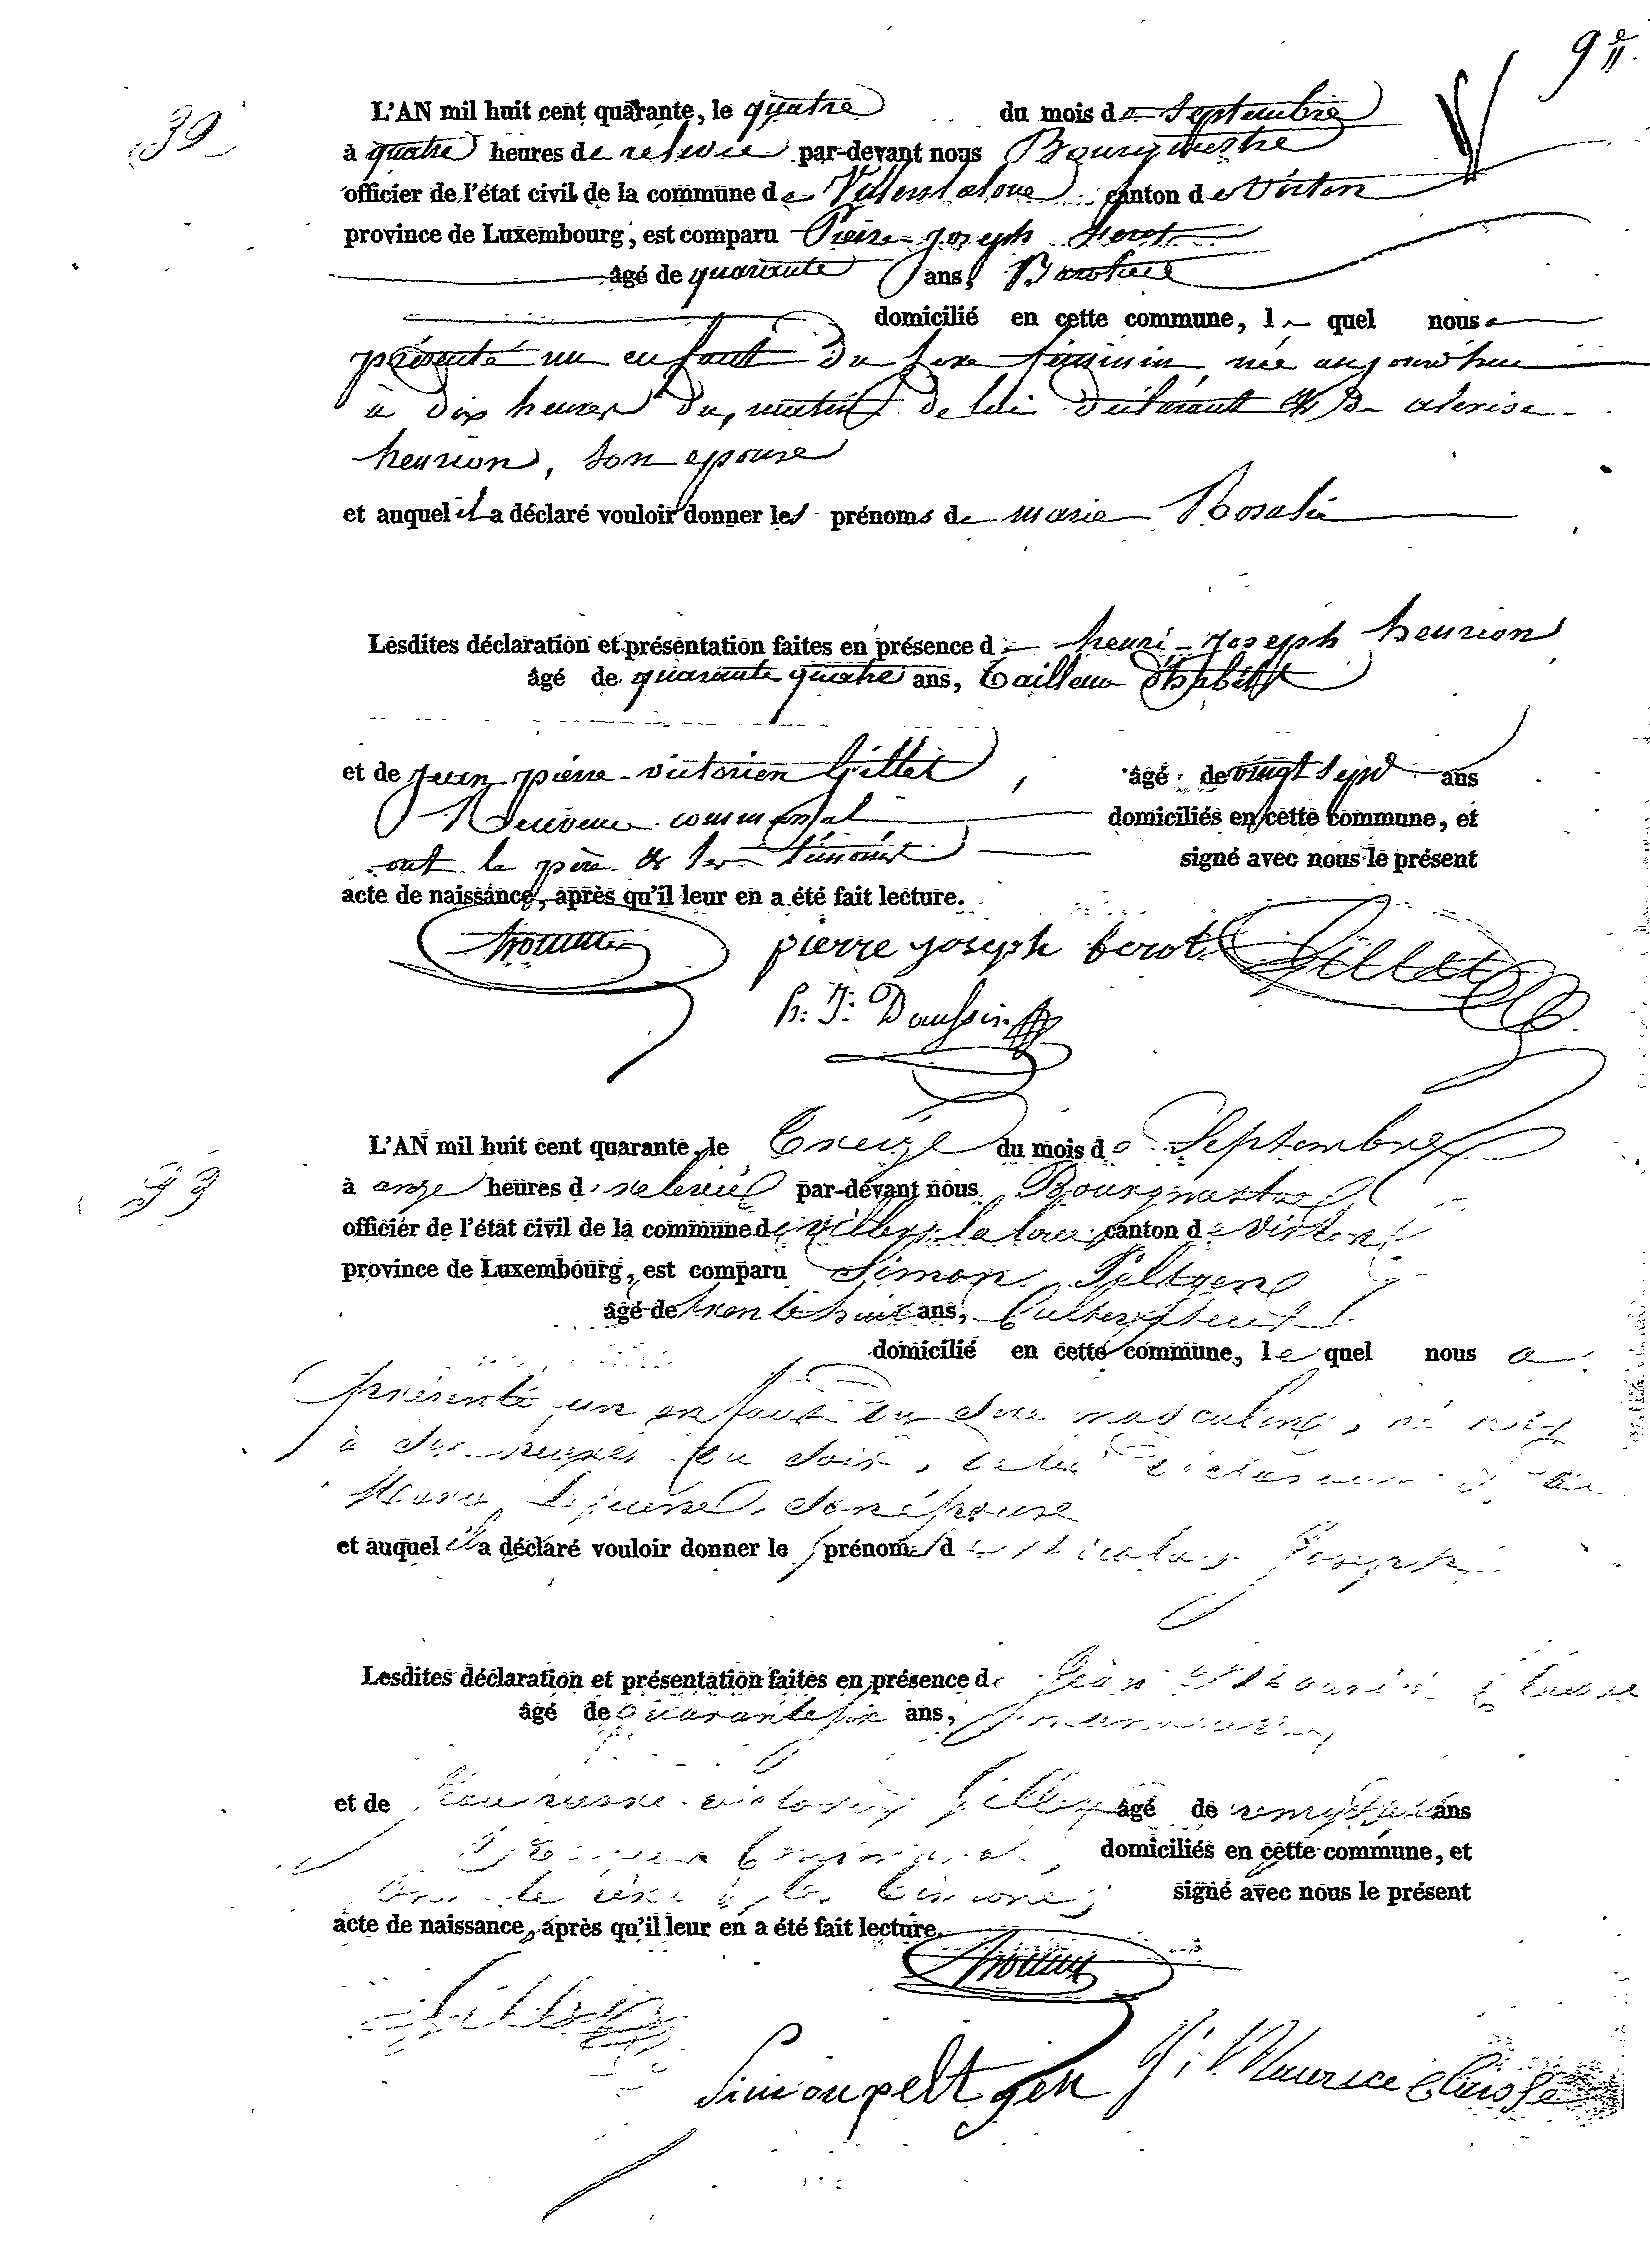 39
L'AN mil huit cent quarante, le quatre du mois de Septembre
à quatre heures de relevée par-devant nous Bourgmestre
officier de l'état civil de la commune de Villers la loue canton de Virton
province de Luxembourg, est comparu Pierre-Joseph
âgé de quarante ans,
domicilié en cette commune, le quel nous
présenté un enfant du sexe féminin née aujourd'hui
à dix heures du matin de lui déclarant & de
henrion, son epouse
et auquel il a déclaré vouloir donner les prénoms de marie Rosalie
Lesdites déclaration et présentation faites en présence de henri-Joseph henrion
âgé de quarante quatre ans, tailleur d'habits
et de jean pierre-victorien Gillet, âgé de vingt sept ans
Receveur communal domiciliés en cette commune, et
ont le père & les témoins signé avec nous le présent
acte de naissance, après qu'il leur en a été fait lecture.
pierre joseph Gillet
h. J.
33
L'AN mil huit cent quarante, le treize du mois de Septembre
à onze heures de relevée par-devant nous Bourgmestre
officier de l'état civil de la commune de villers la loue canton de virton
province de Luxembourg, est comparu Simon Peltgen
âgé de trente huit ans, Cultivateur
domicilié en cette commune, le quel nous a
présenté un enfant du sexe masculin, né
à dix heures du soir, de lui déclarant & de
Lejeune, son épouse
et auquel il a déclaré vouloir donner les prénoms de Nicolas Joseph
Lesdites déclaration et présentation faites en présence de Jean Maurice
âgé de quarante six ans,
et de Jean pierre victorien Gillet âgé de vingt sept ans
Receveur Communal domiciliés en cette commune, et
ont le père & les témoins signé avec nous le présent
acte de naissance, après qu'il leur en a été fait lecture.
Gillet
Simon peltgen J: Maurice